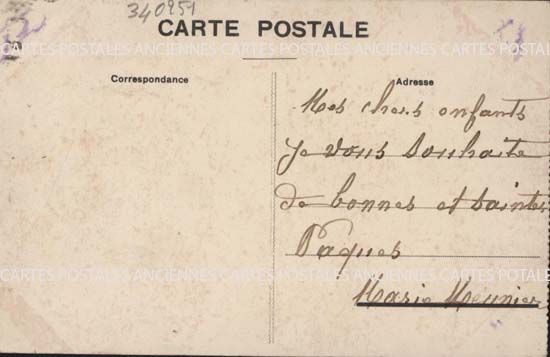 340951
CARTE POSTALE
CARTES POSTALES ANCIENNES CARTES POSTALES ANCIENNES CARTES POSTALES
Correspondance
Adresse
Mes chers enfants
Je vous souhaite
de bonnes et saintes
Pâques
CARTES POSTALES ANCIENNES CARTES POSTALES ANCIENNES CARTES POTALE
Marie Meunier